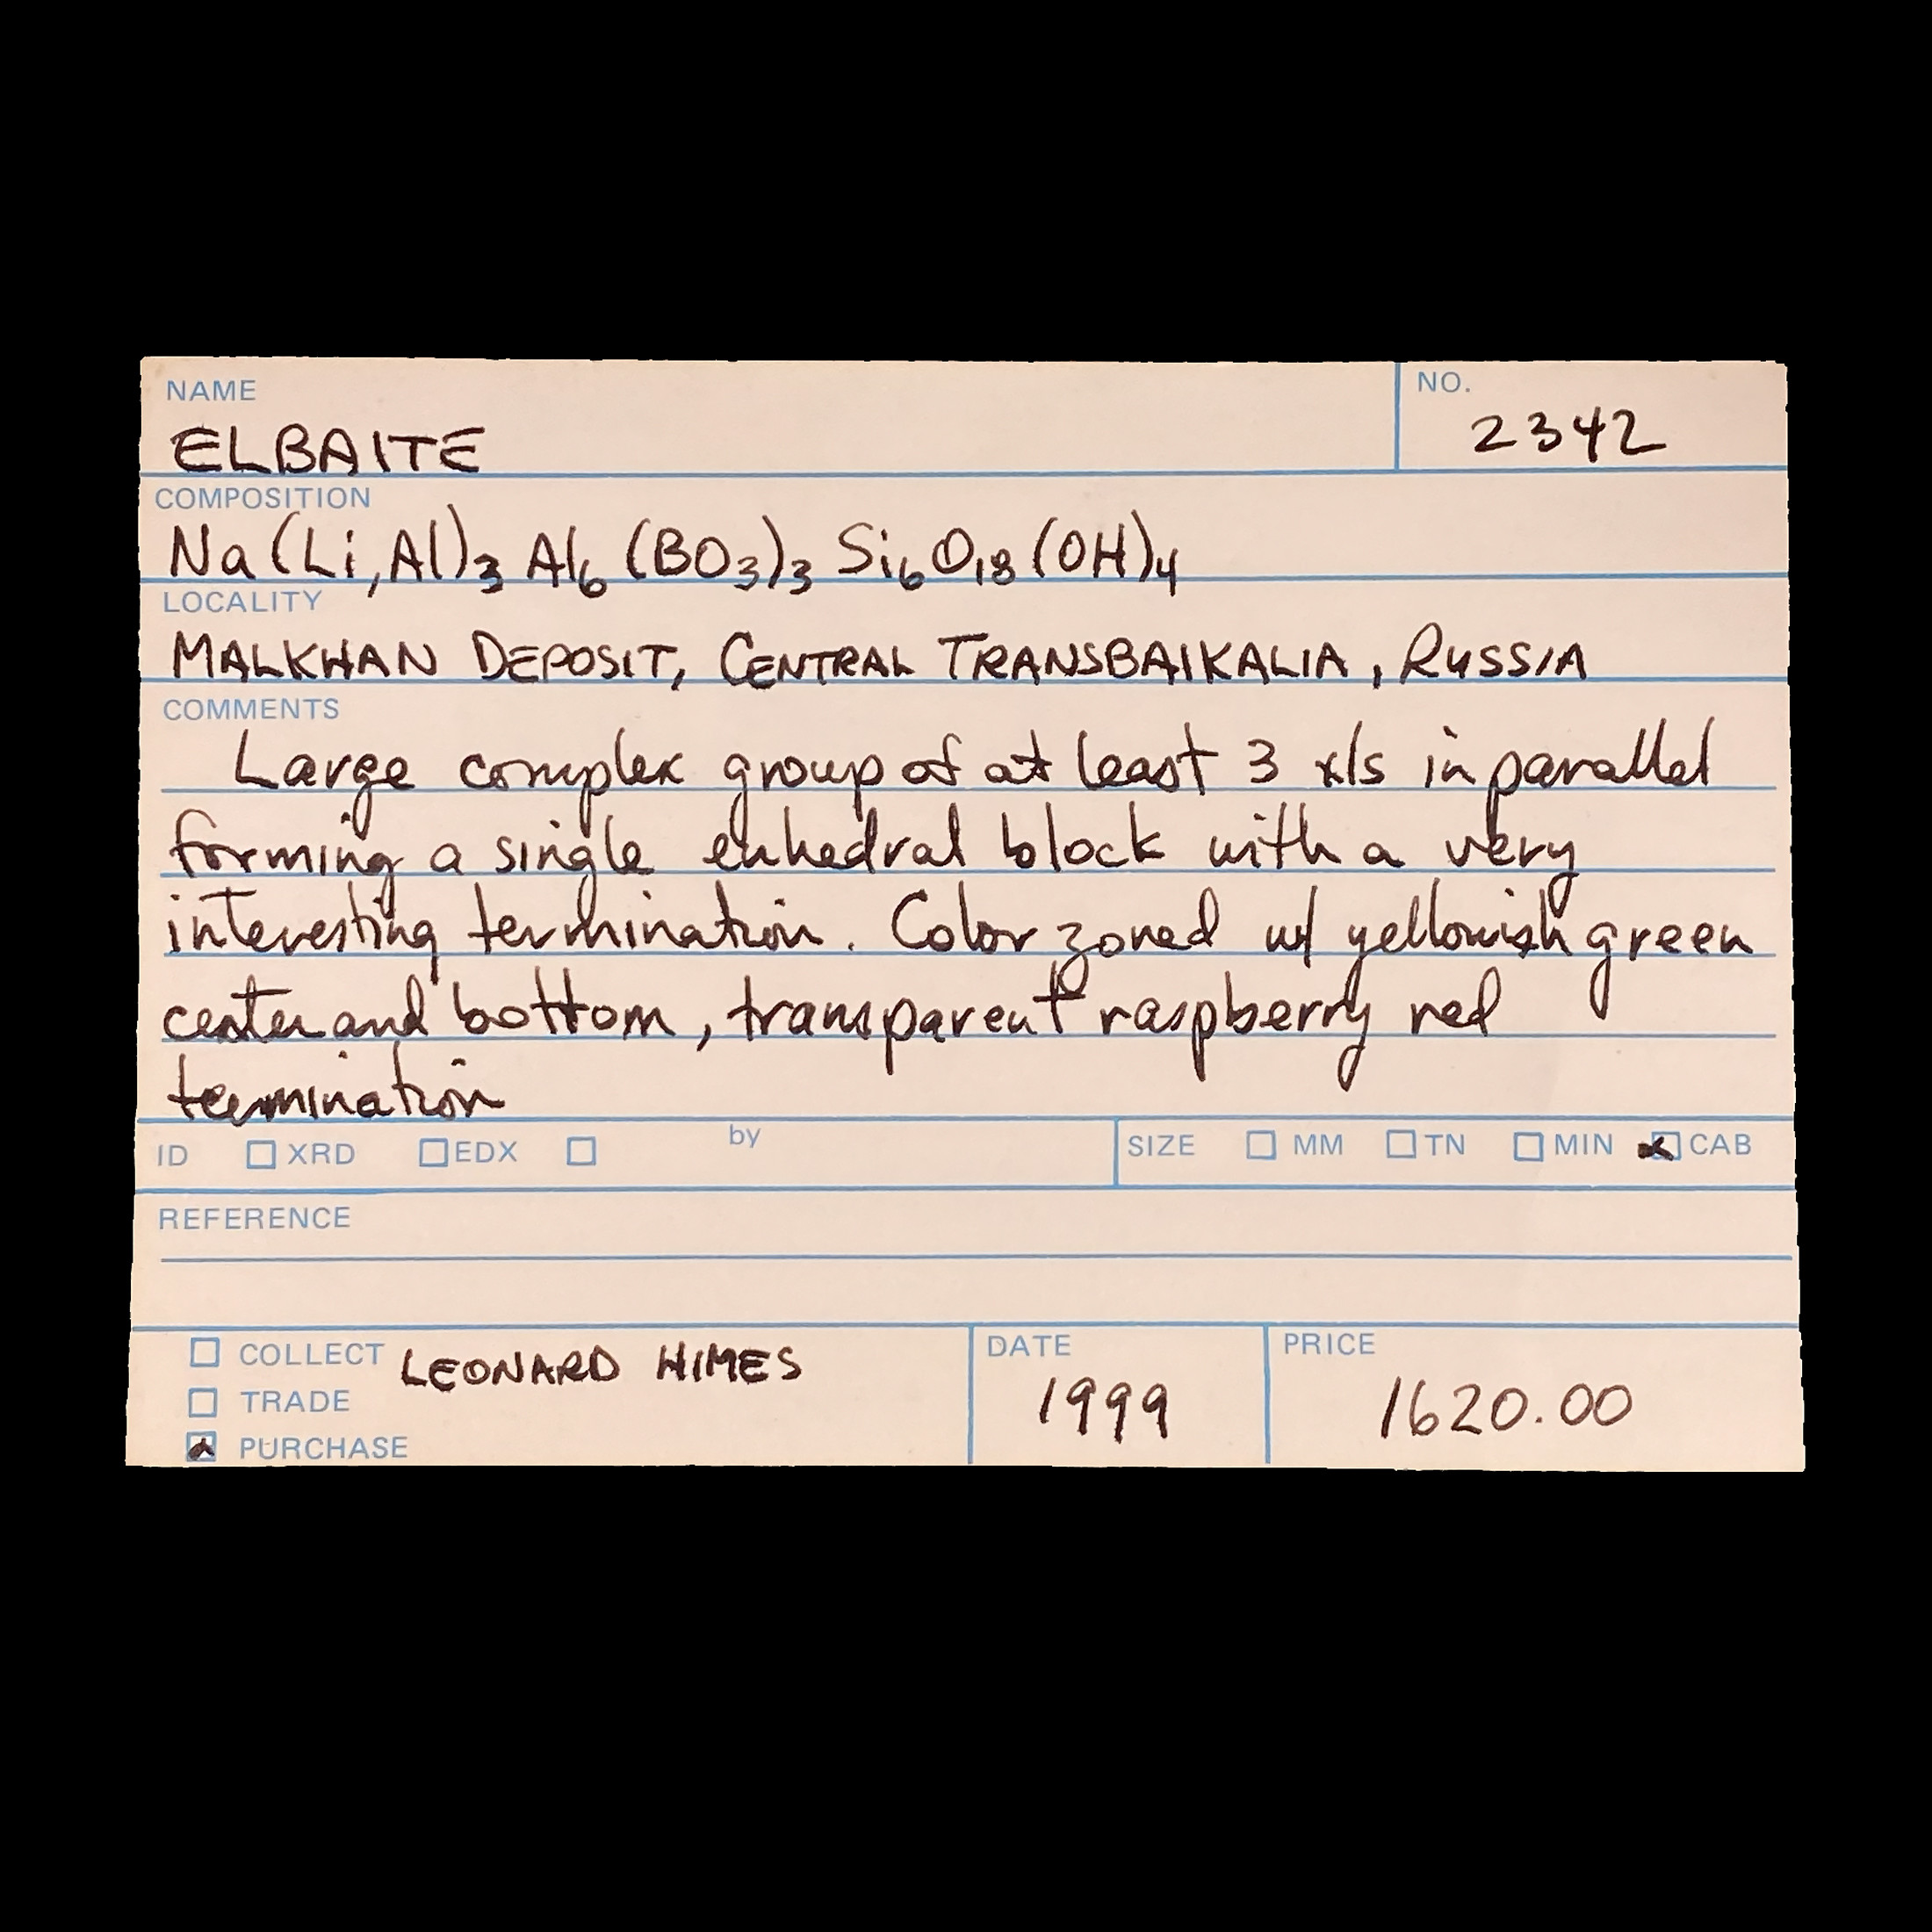 NAME NO.
ELBAITE 2342
COMPOSITION
Na(Li,Al)₃ Al₆ (BO₃)₃ Si₆O₁₈(OH)₄
LOCALITY
MALKHAN DEPOSIT, CENTRAL TRANSBAIKALIA, RUSSIA
COMMENTS
Large complex group of at least 3 xls in parallel
forming a single euhedral block with a very
interesting termination. Color zoned w/ yellowish green
center and bottom, transparent raspberry red
termination
ID XRD EDX by SIZE MM TN MIN CAB
REFERENCE
COLLECT LEONARD HIMES DATE PRICE
TRADE 1999 1620.00
PURCHASE